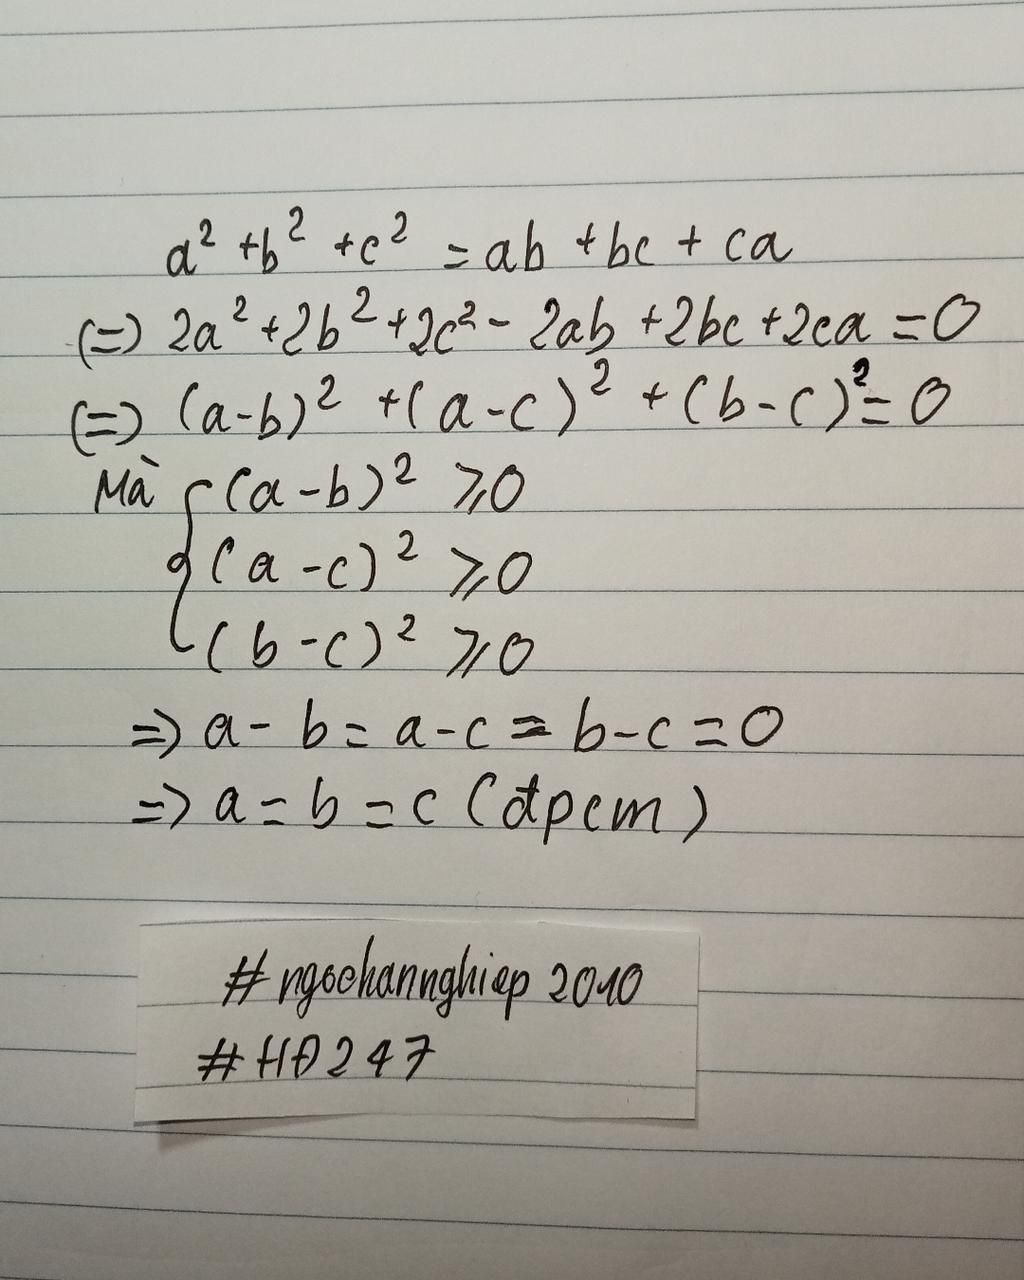 a² + b² + c² = ab + bc + ca
(=) 2a² + 2b² + 2c² - 2ab + 2bc + 2ca = 0
(=) (a-b)² + (a-c)² + (b-c)² = 0
Mà { (a-b)² ⩾ 0
(a-c)² ⩾ 0
(b-c)² ⩾ 0
=> a - b = a - c = b - c = 0
=> a = b = c (đpcm)
# ngochannghiep 2010
# HĐ247